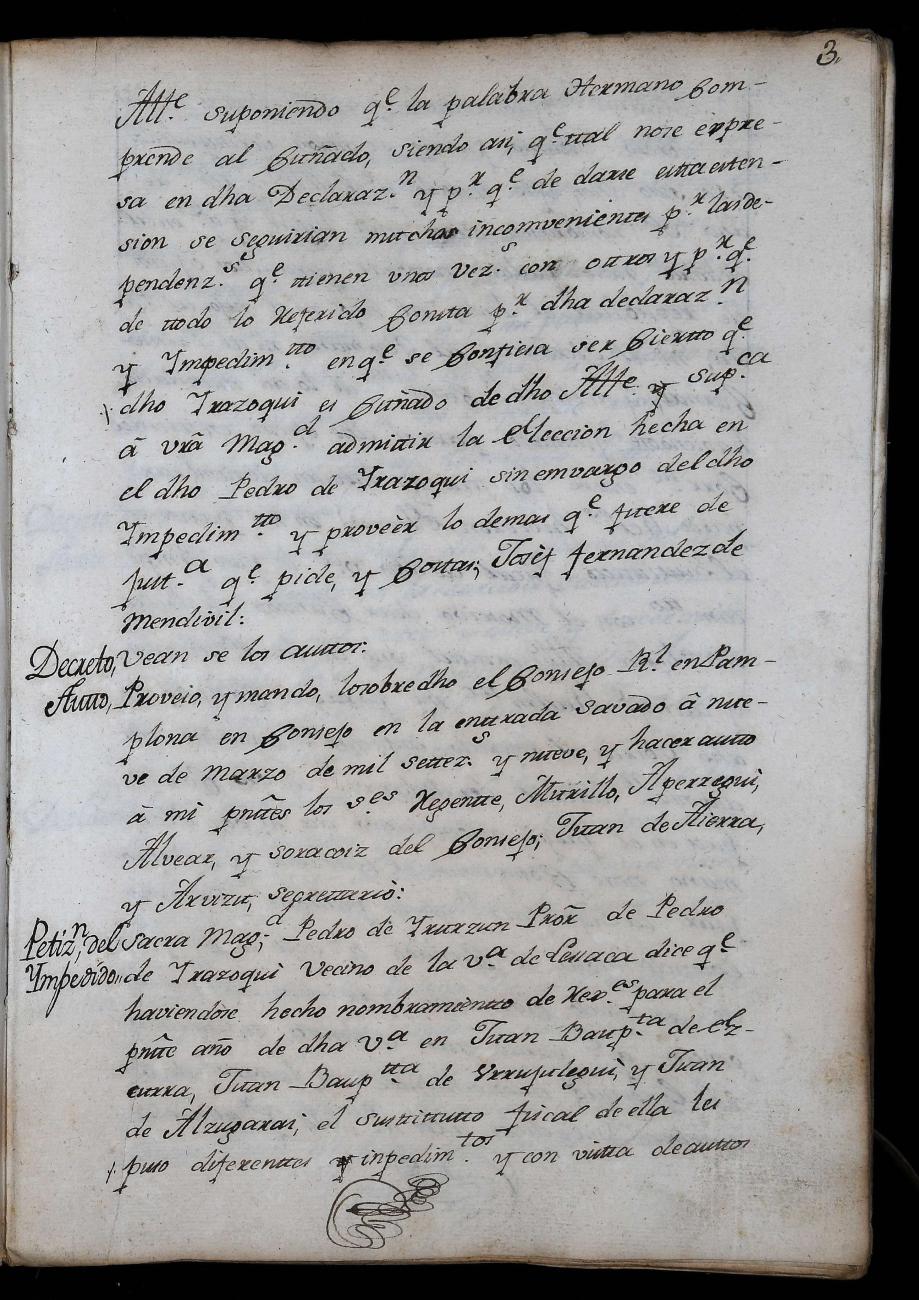 3.
Altte. suponiendo qe. la palabra Hermano Com-
prende al Cuñado, siendo asi, qe. ttal nose expre-
sa en dha Declaraz.n y p.r q.e de darse estta esten-
sion se seguirian muchos incomvenientes p.r lasde-
pendenz.s q.e ttienen unos vez.s con ottros y p.r q.e
de ttodo lo Referido Consta p.r dha declaraz.n
y Ympedim.tto en q.e se Confiesa ser Ciertto q.e
dho Yrazoqui es Cuñado de dho Altte. y sup.ca
â vrâ Mag.d admittir la eleccion hecha en
el dho Pedro de Yrazoqui sin emvargo del dho
Ympedim.tto y proveèr lo demas q.e fuere de
Just.a q.e pide, y Costas; Josèf fernandez de
Mendivil:
Decreto, vean se los auttos:
Autto, Proveio, y mando, losobredho el Consejo R.l en Pam-
plona en Consejo en la enttrada savado â nue-
ve de Marzo de mil settez.s y nueve, y hacer autto
â mi pnttes los s.es Regentte, Murillo, Aperregui,
Alvear, y soracoiz del Consejo; Juan de Aierra,
y Arvizu, segrettario:
Petiz.n, del Sacra Mag.d; Pedro de Yrurzun Prôr de Pedro
Ympedido,, de Yrazoqui Vecino de la v.a de Lessaca dice q.e
haviendose hecho nombramientto de Rex.es para el
pntte año de dha v.a en Juan Baup.tta de elz-
eurra, Juan Baup.tta de Vrrujulegui, y Juan
de Alzugarai, el susttittutto fiscal de ella les
puso diferenttes y inpedim.tos y con vistta de auttos